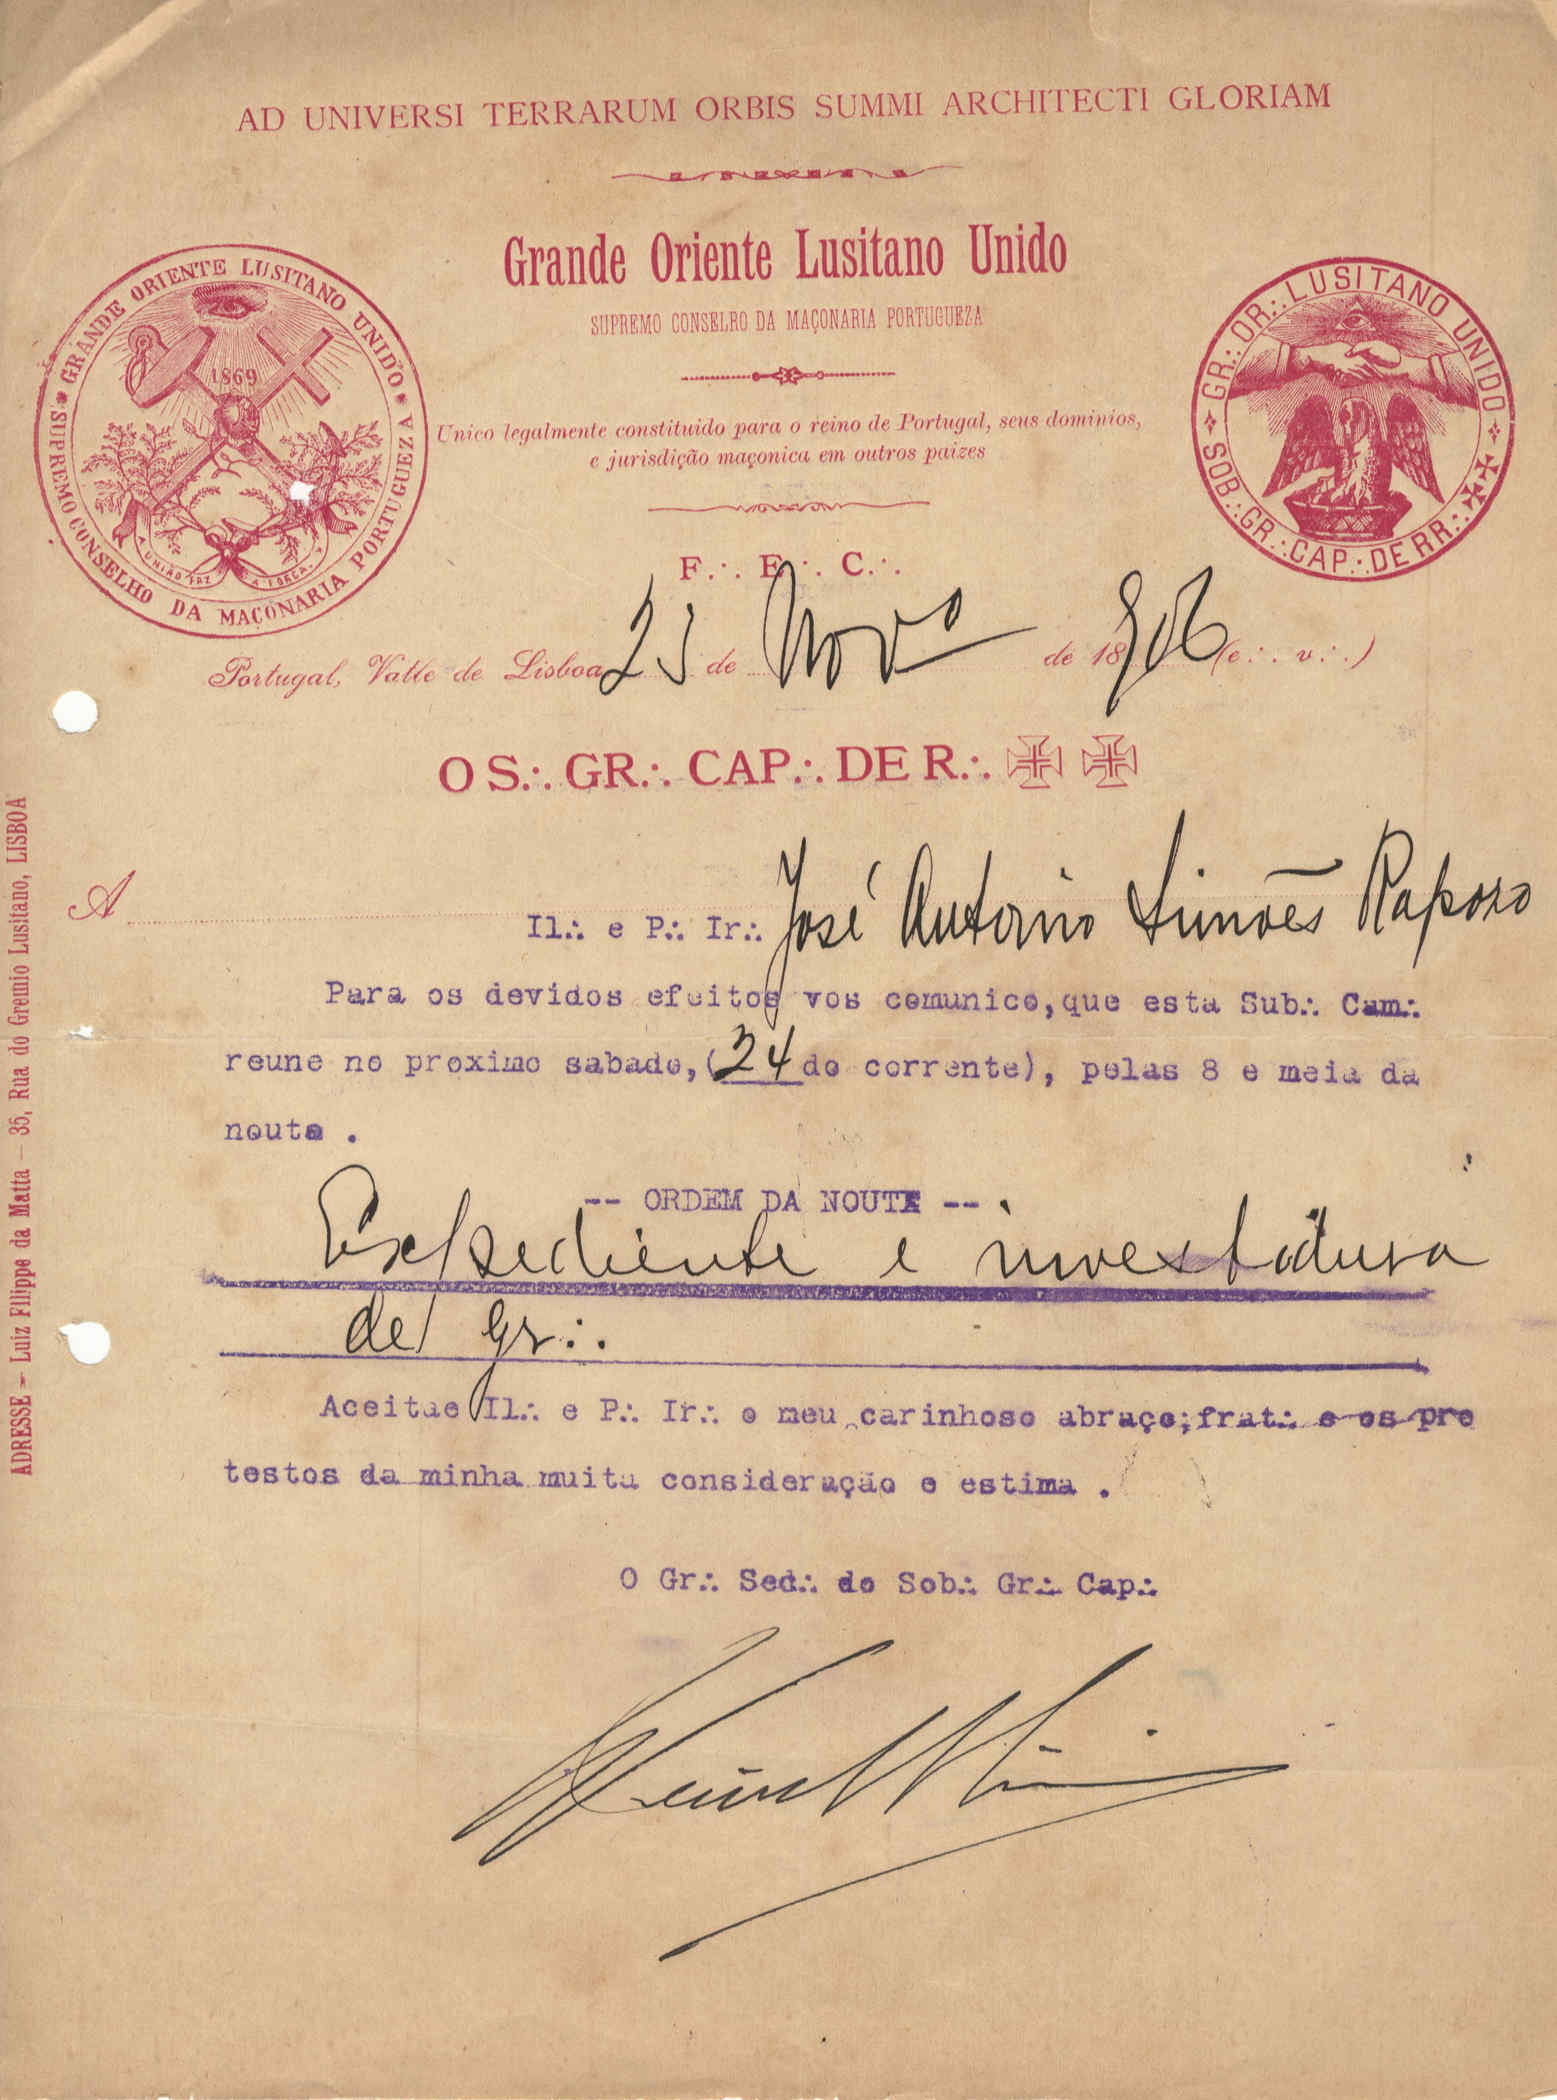 AD UNIVERSI TERRARUM ORBIS SUMMI ARCHITECTI GLORIAM
Grande Oriente Lusitano Unido
SUPREMO CONSELHO DA MAÇONARIA PORTUGUEZA
GRANDE ORIENTE LUSITANO UNIDO
SUPREMO CONSELHO DA MAÇONARIA PORTUGUEZA
1869
A UNIÃO FAZ A FORÇA
GR∴ OR∴ LUSITANO UNIDO
SOB∴ GR∴ CAP∴ DE RR∴ ✠✠
Unico legalmente constituido para o reino de Portugal, seus dominios,
e jurisdição maçonica em outros paizes
F∴ E∴ C∴
Portugal, Valle de Lisboa 23 de Novº de 18906 (e∴ v∴)
O S∴ GR∴ CAP∴ DE R∴ ✠ ✠
A
Il∴ e P∴ Ir∴ José Antonio Simões Raposo
Para os devidos efeitos vos comunico, que esta Sub∴ Cam∴
reune no proximo sabado, (24 do corrente), pelas 8 e meia da
noute .
-- ORDEM DA NOUTE --
Expediente e investidura
de gr∴
Aceitae Il∴ e P∴ Ir∴ o meu carinhoso abraço; frat∴ e os pro
testos da minha muita consideração e estima .
O Gr∴ Sed∴ do Sob∴ Gr∴ Cap∴
ADRESSE — Luiz Filippe da Matta — 35, Rua do Gremio Lusitano, LISBOA